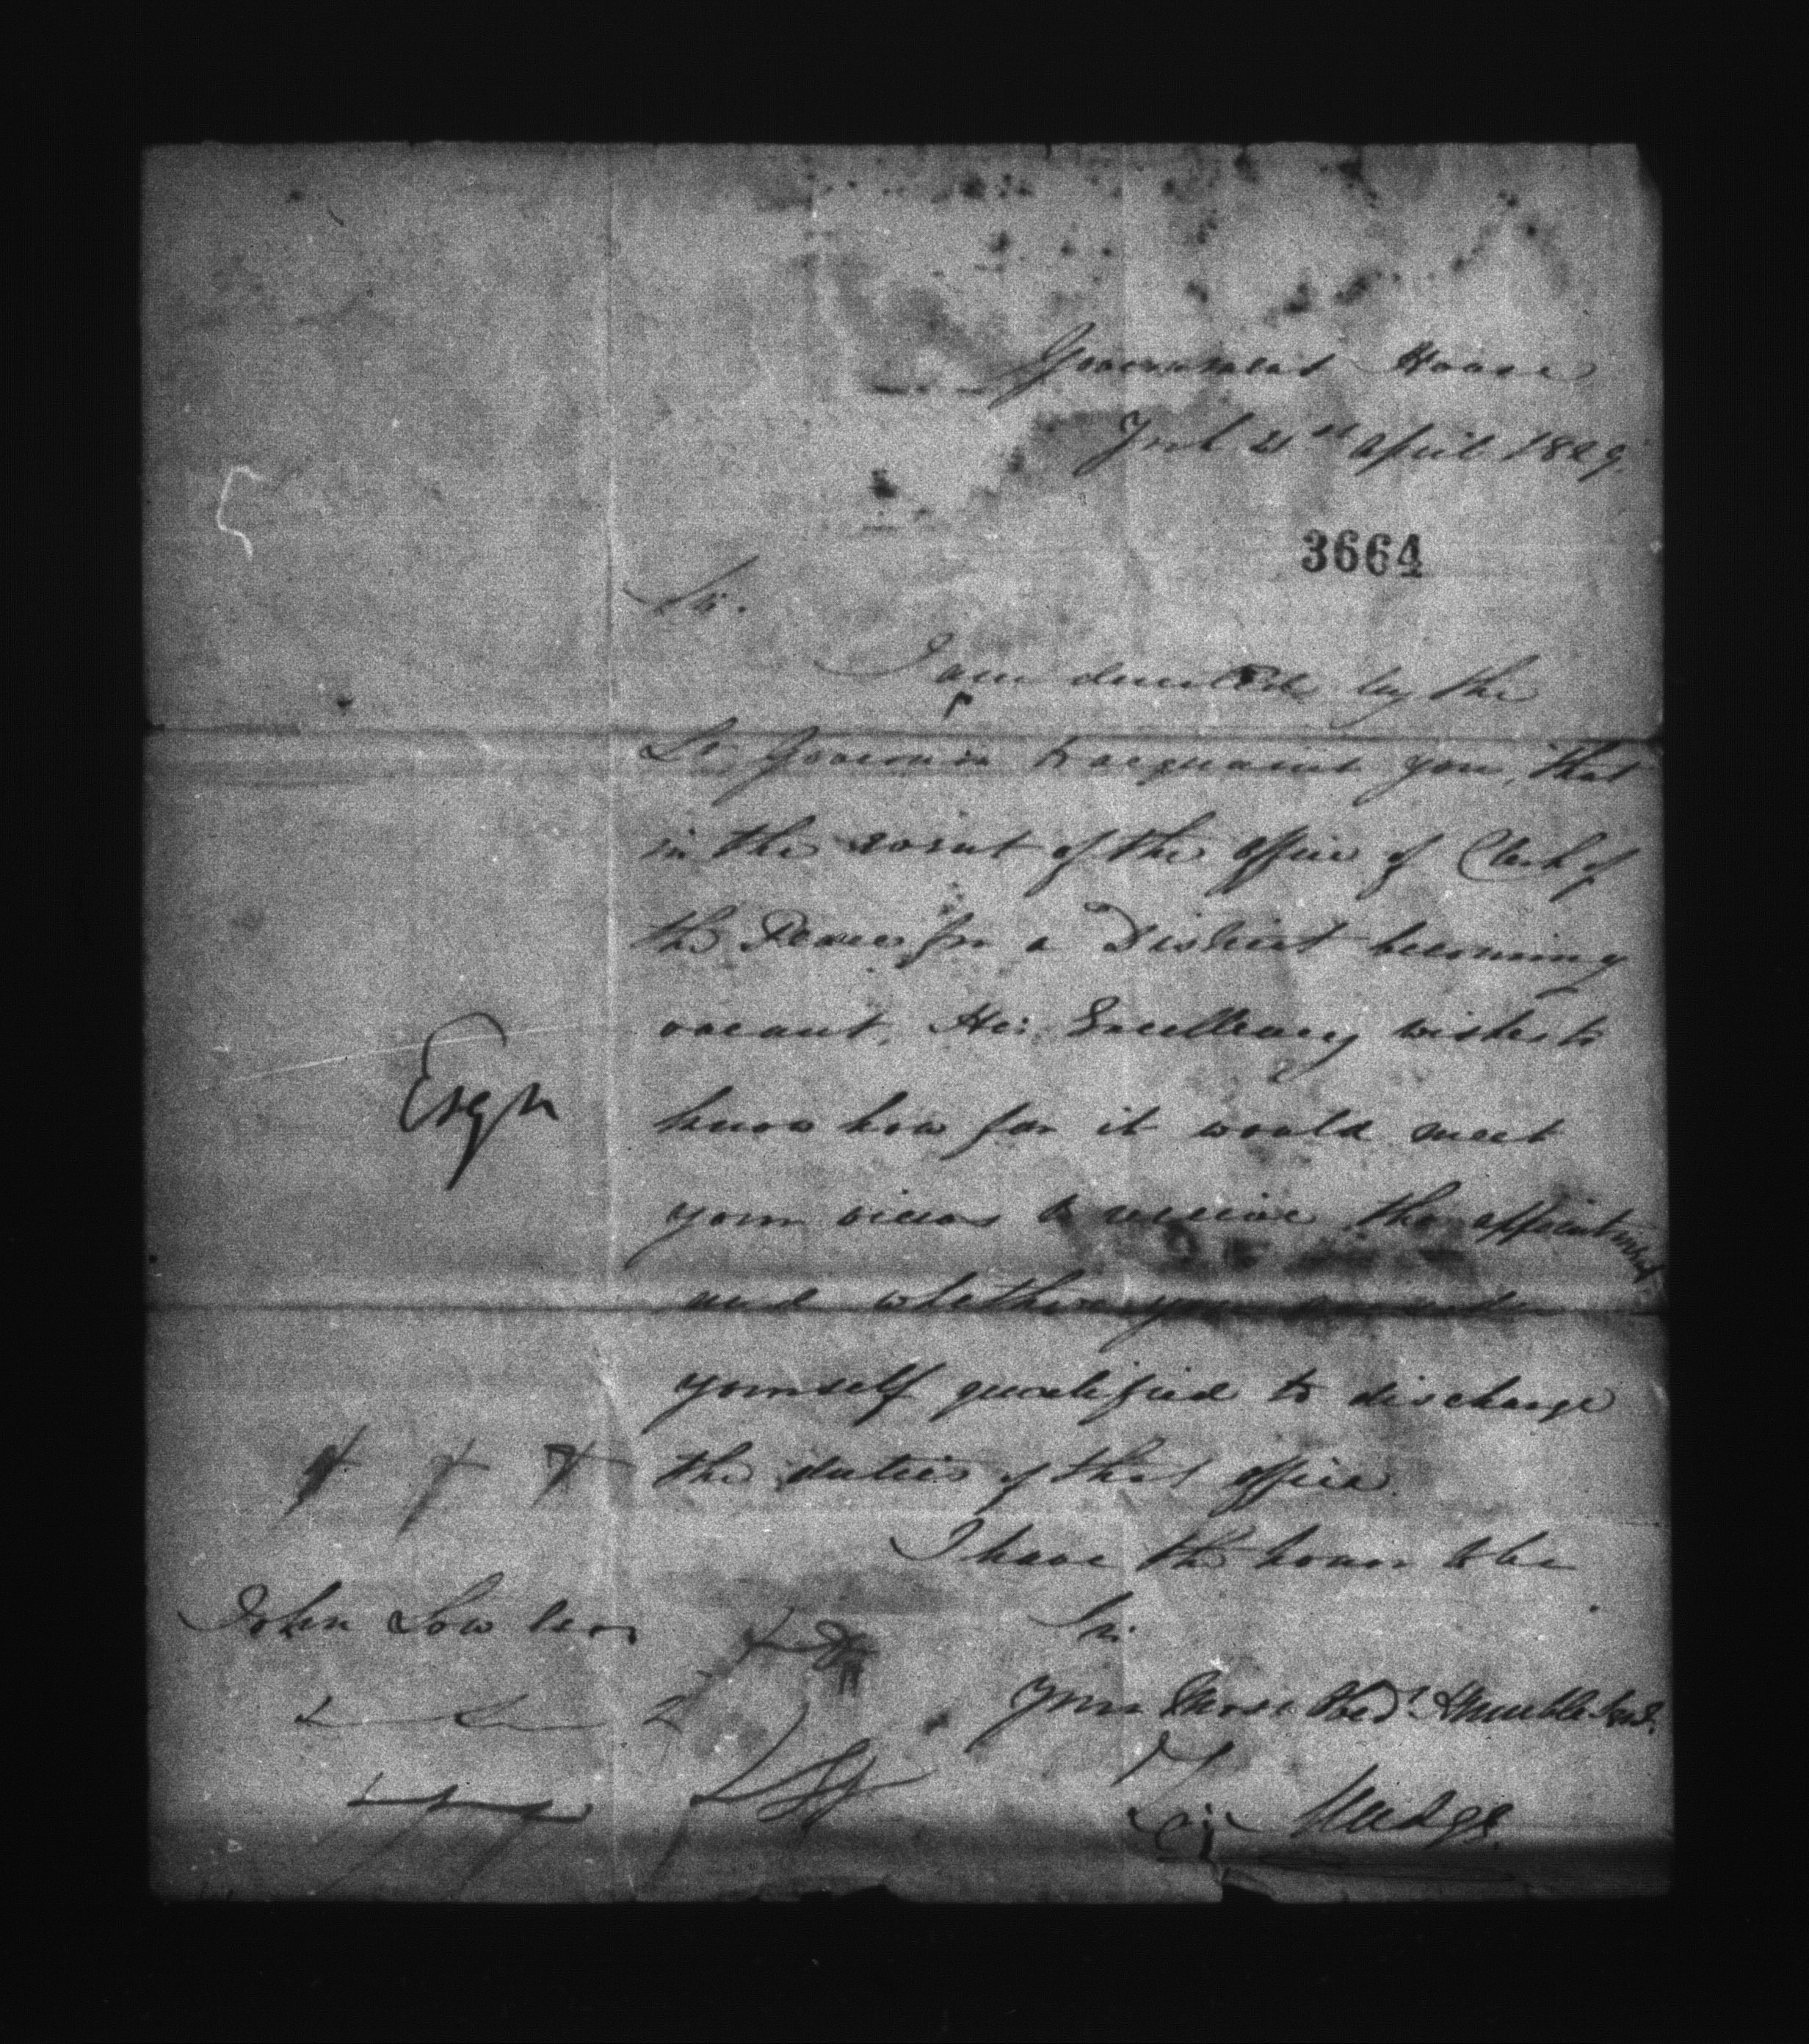 Government House
York 21st April 1829.
3664
Sir.
I am directed by the
Lt. Governor to acquaint you, that
in the event of the office of Clerk of
the Peace for a District becoming
vacant, His Excellency wishes to
know how far it would meet
Esqr
your views to receive the appointment
and whether you
yourself qualified to discharge
the duties of that office.
I have the honor to be
John Low
Sir.
Your Most Obedt Humble Servt.
Z Mudge.